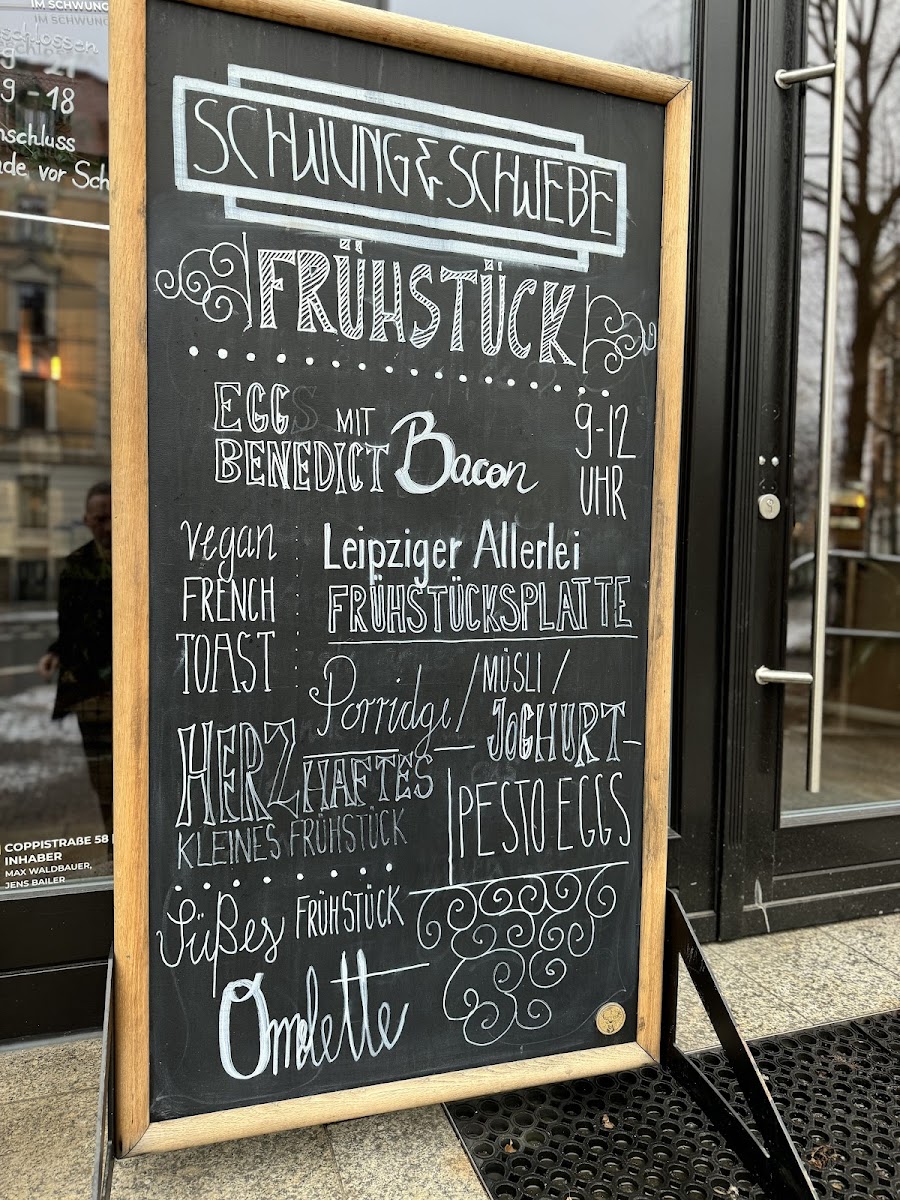 IM SCHWUNG
IM SCHWUNG
9 - 18
de, vor Sch
SCHWUNG & SCHWEBE
FRÜHSTÜCK
EGGS MIT
BENEDICT Bacon
9-12
UHR
vegan
FRENCH
TOAST
Leipziger Allerlei
FRÜHSTÜCKSPLATTE
Porridge / MÜSLI /
JOGHURT
HERZHAFTES
KLEINES FRÜHSTÜCK
PESTO EGGS
Süßes FRÜHSTÜCK
Omelette
COPPISTRAẞE 58
INHABER
MAX WALDBAUER,
JENS BAILER